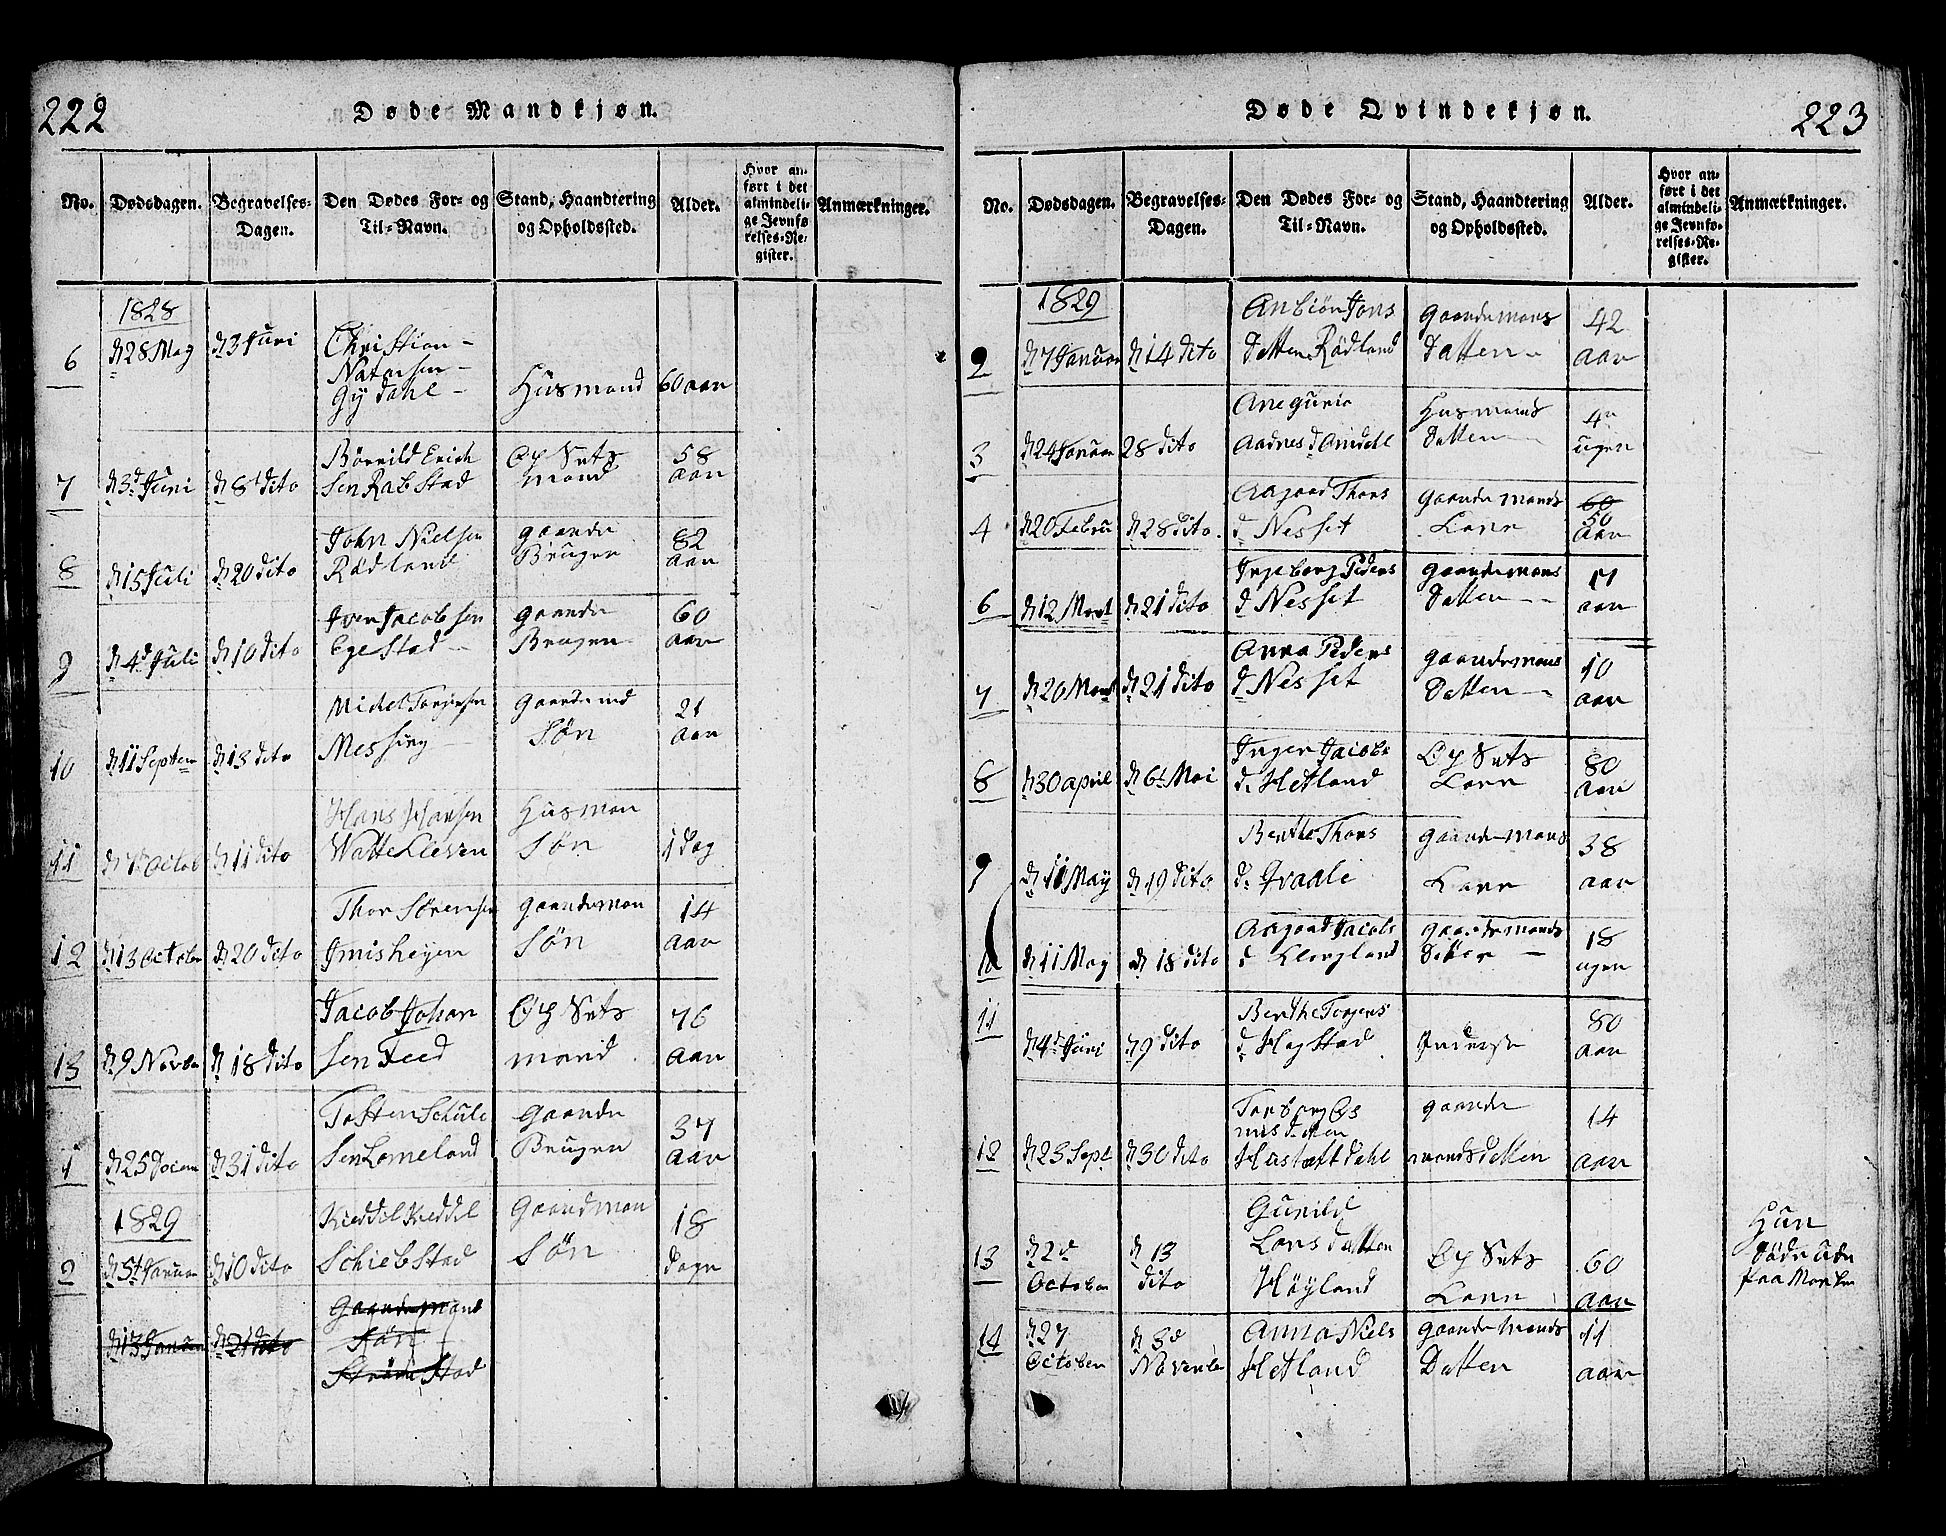 222
Døde Mandkjøn.
No. Dødsdagen. Begravelses-Dagen. Den Dødes For- og Til-Navn. Stand, Haandtering og Opholdssted. Alder. Hvor anført i det almindelige Jevnførelses-Register. Anmærkninger.
1828
6 d 28 May d 3 Juni Christian Natansen Gydahl Husmand 60 aar
7 d 3d Juni d 8d dito Børrild Erich sen Rabstad Opsets mand 58 aar
8 d 15 Juli d 20 dito John Nielsen Rødland gaarde Bruger 82 aar
9 d 4d Juli d 10 dito Iver Jacobsen Egestad gaarde Bruger 60 aar
10 d 11 Septem d 13 dito Michel Torgersen Messing Søn 21 aar
11 d 11 dito Hans Hansen Husman Søn 1 dag
12 d 13 October d 20 dito Thor Sørensen gaardeman Søn 14 aar
13 d 9 Novbr d 18 dito Jacob Johan sen Feed Opsets mand 76 aar
1 d 25 d 31 dito Gaarde Bruger 37 aar
1829
2 d 5t Januar d 10 dito Kieddel Kieddel Schiebstad Gaardman Søn 18 dage
d 13 Januar d 21 dito Gaardemand Søn
223
Døde Qvindekjøn.
No. Dødsdagen. Begravelses-Dagen. Den Dødes For- og Til-Navn. Stand, Haandtering og Opholdssted. Alder. Hvor anført i det almindelige Jevnførelses-Register. Anmærkninger.
1829
2 d 7 Januar d 14 dito Anbiør Jons datter Rødland gaardemans datter 42 aar
3 d 24 Januar 28 dito Ane Guria Aadnes d Husmands datter 4 uger
4 d 20 Febru d 28 dito Aagaad Thors d Nesset gaardemands Kone 60 50 aar
6 d 12 Mart d 21 dito Ingeborg Peders d Nesset gaardemans datter 17 aar
7 d 20 Mart d 21 dito Anna Peders d Nesset gaardemans datter 10 aar
8 d 30 april d 6t Mai Inger Jacobs d. Hetland Opsets Kone 80 aar
9 d 11 May d 19 dito Berthe Thors d. Gvaale gaardemans Kone 38 aar
10 d 11 May d 18 dito Aagaad Jacobs d gaardemands 18 uger
11 d 4d Juni d 9 dito Berthe Torgers d. Hegstad Inderst 80 aar
12 d 23 Sept d 30 dito Torborg datter gaarde mands datter 14 aar
13 d 2d October d 13 dito Gunild Lars datter Høyland Opsets Kone 60 aar Hun døde ude paa Marken
14 d 27 October d 3d November Anna Niels Hetland Gaardemands Datter 11 aar